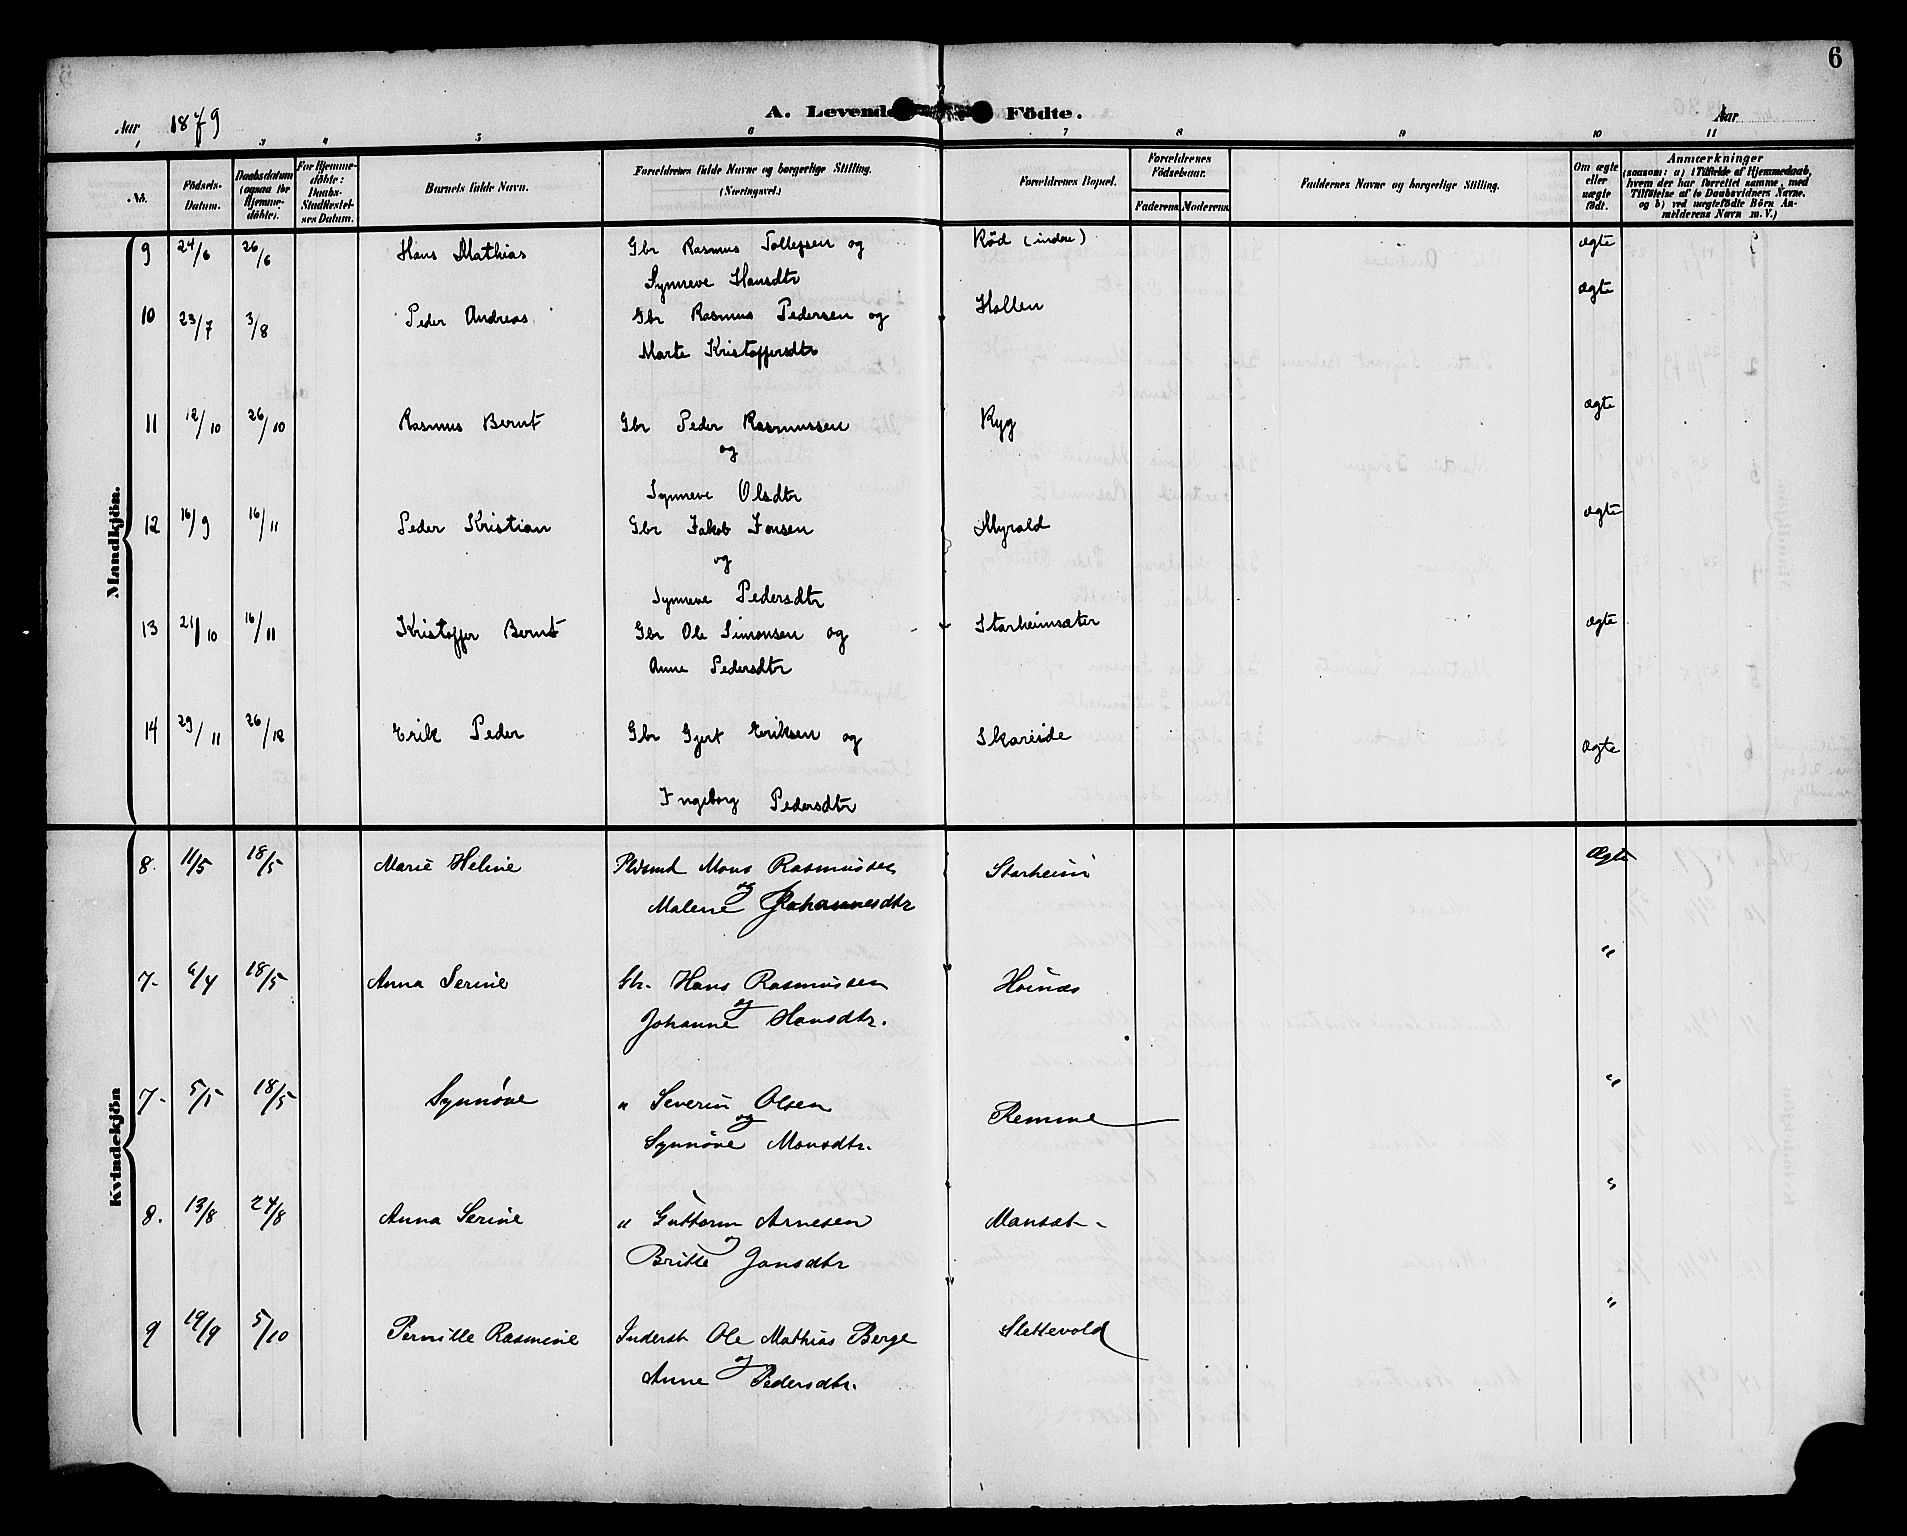 6
Aar 1879
A. Levende Födte.
Aar
1 2 3 4 5 6 7 8 9 10 11
No.
Födsels-Datum.
Daabsdatum (ogsaa for Hjemme-döbte).
For Hjemme-döbte: Daabs-Stadfæstel-ses Datum.
Barnets fulde Navn.
Forældrenes fulde Navne og borgerlige Stilling. (Næringsvei.)
Forældrenes Bopæl.
Forældrenes Födselsaar.
Faderens. Moderens.
Faddernes Navne og borgerlige Stilling.
Om ægte eller uægte födt.
Anmærkninger
(saasom: a) i Tilfælde af Hjemmedaab, hvem der har forrettet samme, med Tilföielse af to Daabsvidners Navne. og b) ved uægtefödte Börn An-melderens Navn m. V.)
Mandkjön.
9 24/6 26/6 Hans Mathias Gbr Rasmus Tollefsen og Rød (indre) ægte
Synneve Hansdtr
10 23/7 3/8 Peder Andreas Gbr Rasmus Pedersen og Hollen ægte
Marte Kristoffersdtr
11 12/10 26/10 Rasmus Bernt Gbr Peder Rasmussen Ryg ægte
og
Synneve Olsdtr
12 16/9 16/11 Peder Kristian Gbr Jakob Jonsen Myrold ægte
og
Synneve Pedersdtr
13 21/10 16/11 Kristoffer Bernt Gbr Ole Simonsen og Starheimsæter ægte
Anne Pedersdtr
14 29/11 26/12 Erik Peder Gbr Gjert Eriksen og Skareide ægte
Ingeborg Pedersdtr
Kvindekjön
8. 11/5 18/5 Marie Heline Pldsmd Mons Rasmussen Starheim Ægte
og
Malene Johannesdtr
7- 6/4 18/5 Anna Serine Gbr. Hans Rasmussen Hoinæs "
og
Johanne Hansdtr.
7- 5/5 18/5 Synnöve " Severin Olsen Remme "
og
Synnöve Monsdtr.
8. 13/8 24/8 Anna Serine " Guttorm Arnesen Mansæt - "
og
Britte Jonsdtr
9 19/9 5/10 Pernille Rasmine Inderst Ole Mathias Berge Slettevold "
og
Anne Pedersdtr.